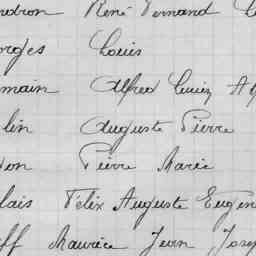 ndron René Fernand
orges Louis
main Alfred Louis
lin Auguste Pierre
on Pierre Marie
lais Félix Auguste Eugen
ff Maurice Jean Josep